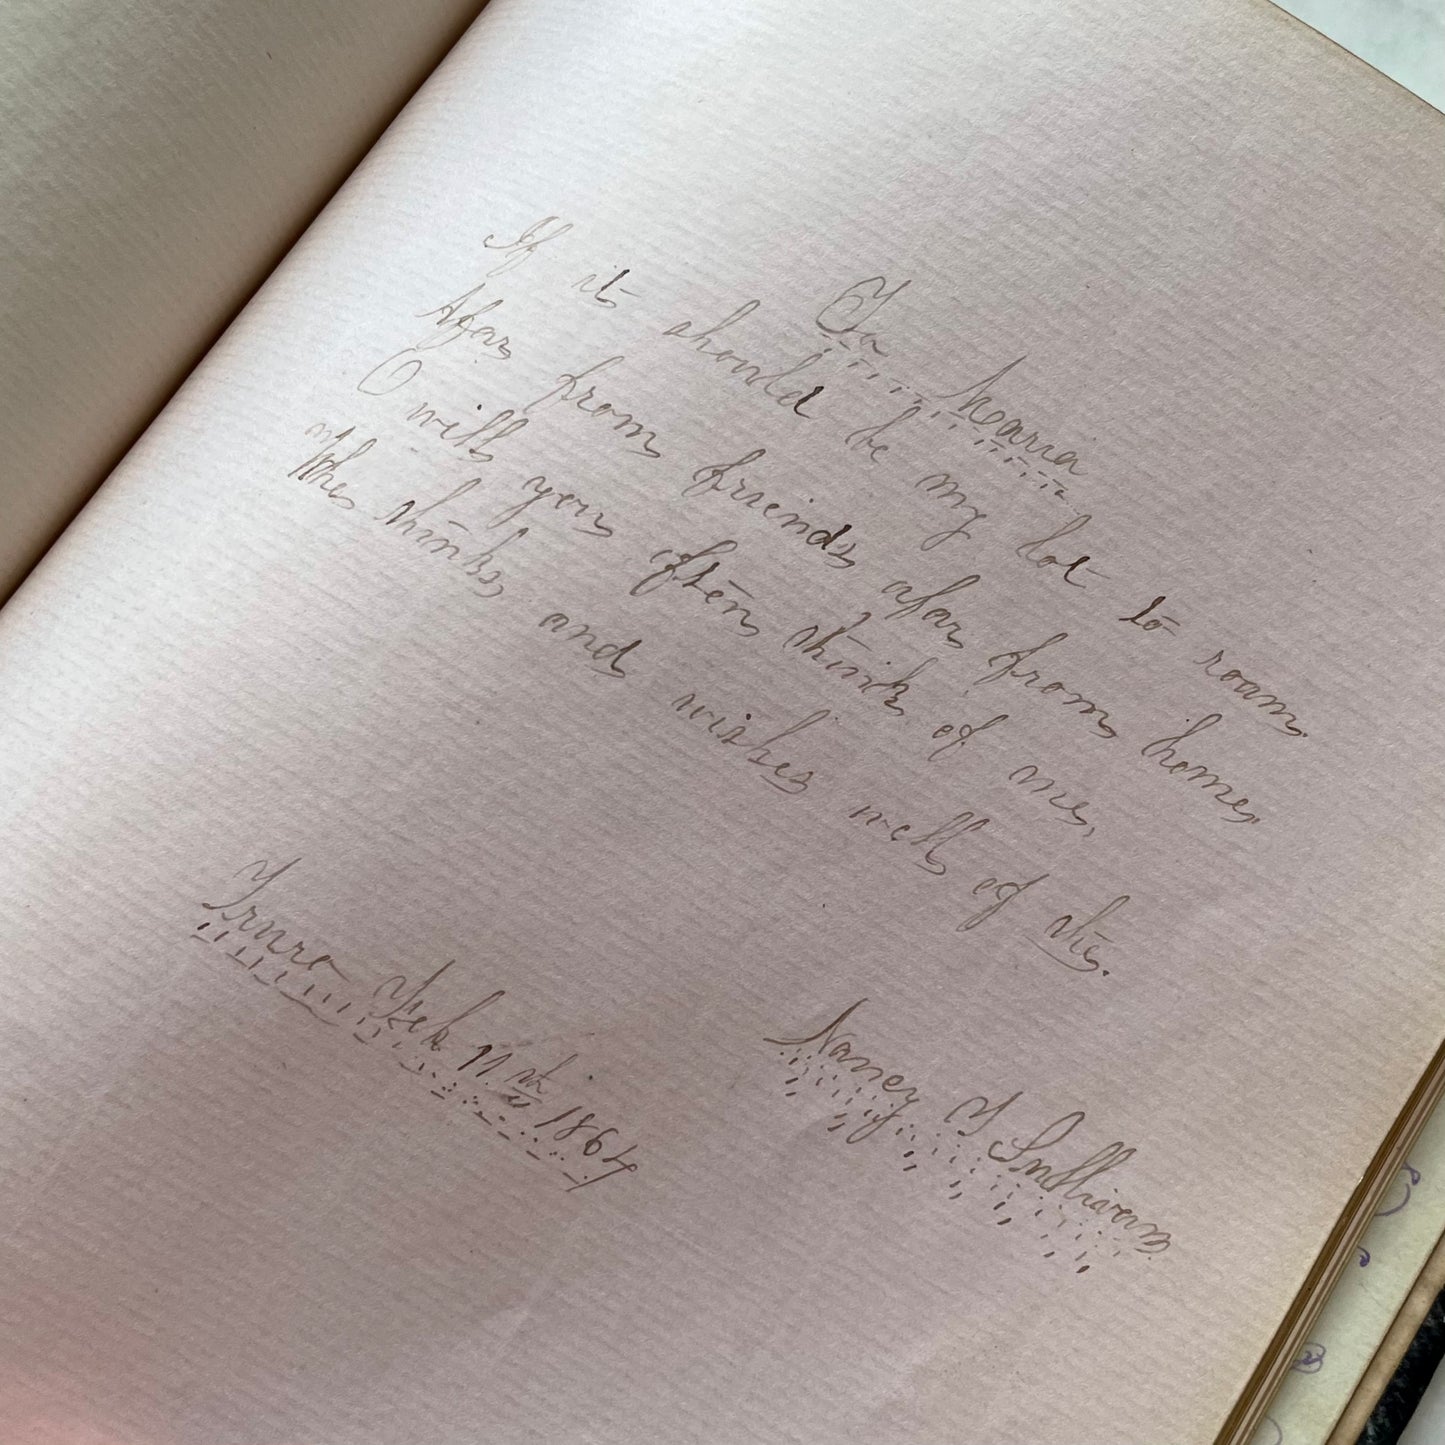 To
If it should be my lot to roam
Afar from friends afar from home,
O will you often think of me,
Who thinks and wishes well of the.
Nancy J Sullivan
Truro Feb 11th 1864